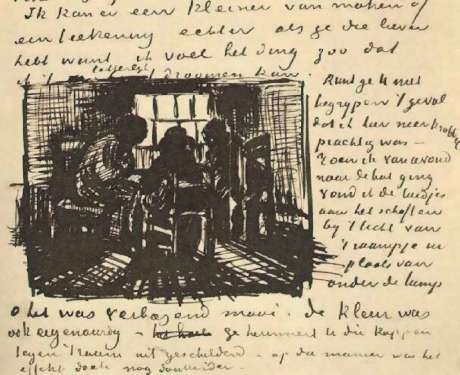 Ik kan er een kleiner van maken of
een teekening echter als ge die liever
hebt want ik voel het ding zoo dat
ik 't letterlijk droomen kan.
Kunt ge U niet
begrypen 't geval
dat ik hier neerkrabbel
prachtig was —
Toen ik van avond
naar de hut ging
vond ik de luidjes
aan het schaften
by 't licht van
't raampje in
plaats van
onder de lamp
o het was verbazend mooi. De kleur was
ook eigenaardig — ge herinnert U die koppen
tegen 't raam uit geschilderd — op die manier was het
effekt doch nog donkerder —